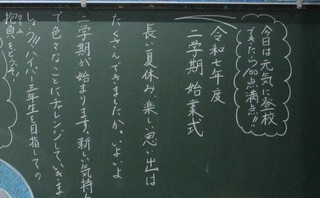 今日は元気に登校
できたら100点満点!!
令和七年度
二学期 始業式
長い夏休み、楽しい思い出は
たくさんできましたか。いよいよ
二学期が始まります。新しい気持ち
で色々なことにチャレンジしていきま
しょう!!ハイパー三年生を目指しての
抱負をどうぞ!